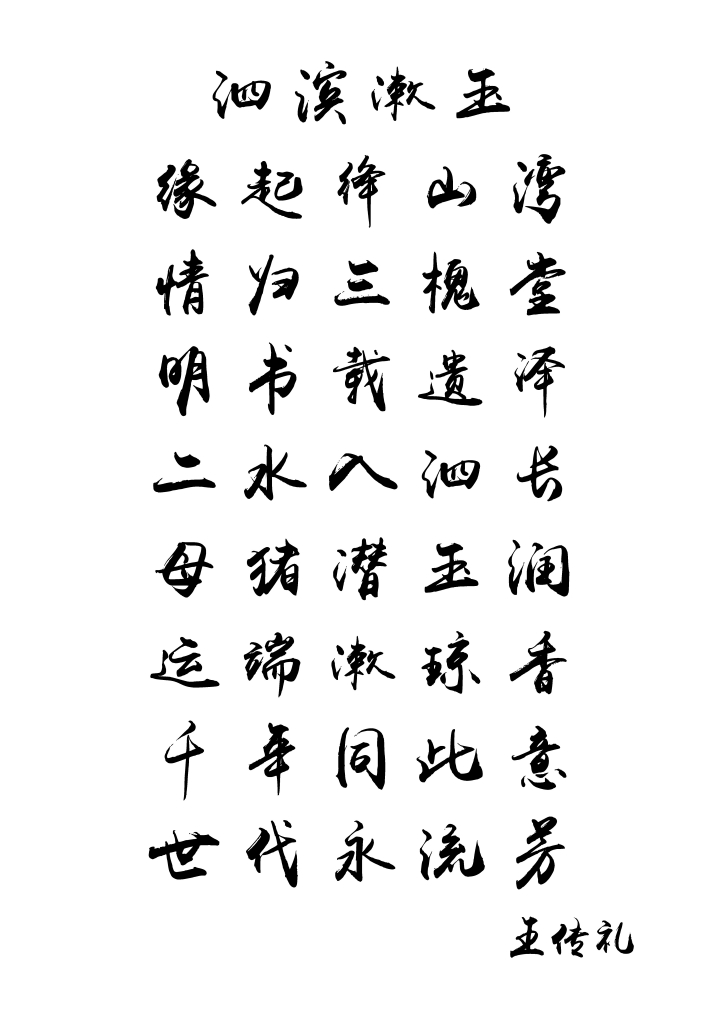 泗滨漱玉
缘起绛山湾
情归三槐堂
明书载遗泽
二水入泗长
母猪潜玉润
运端漱琼香
千年同此意
世代永流芳
王传礼